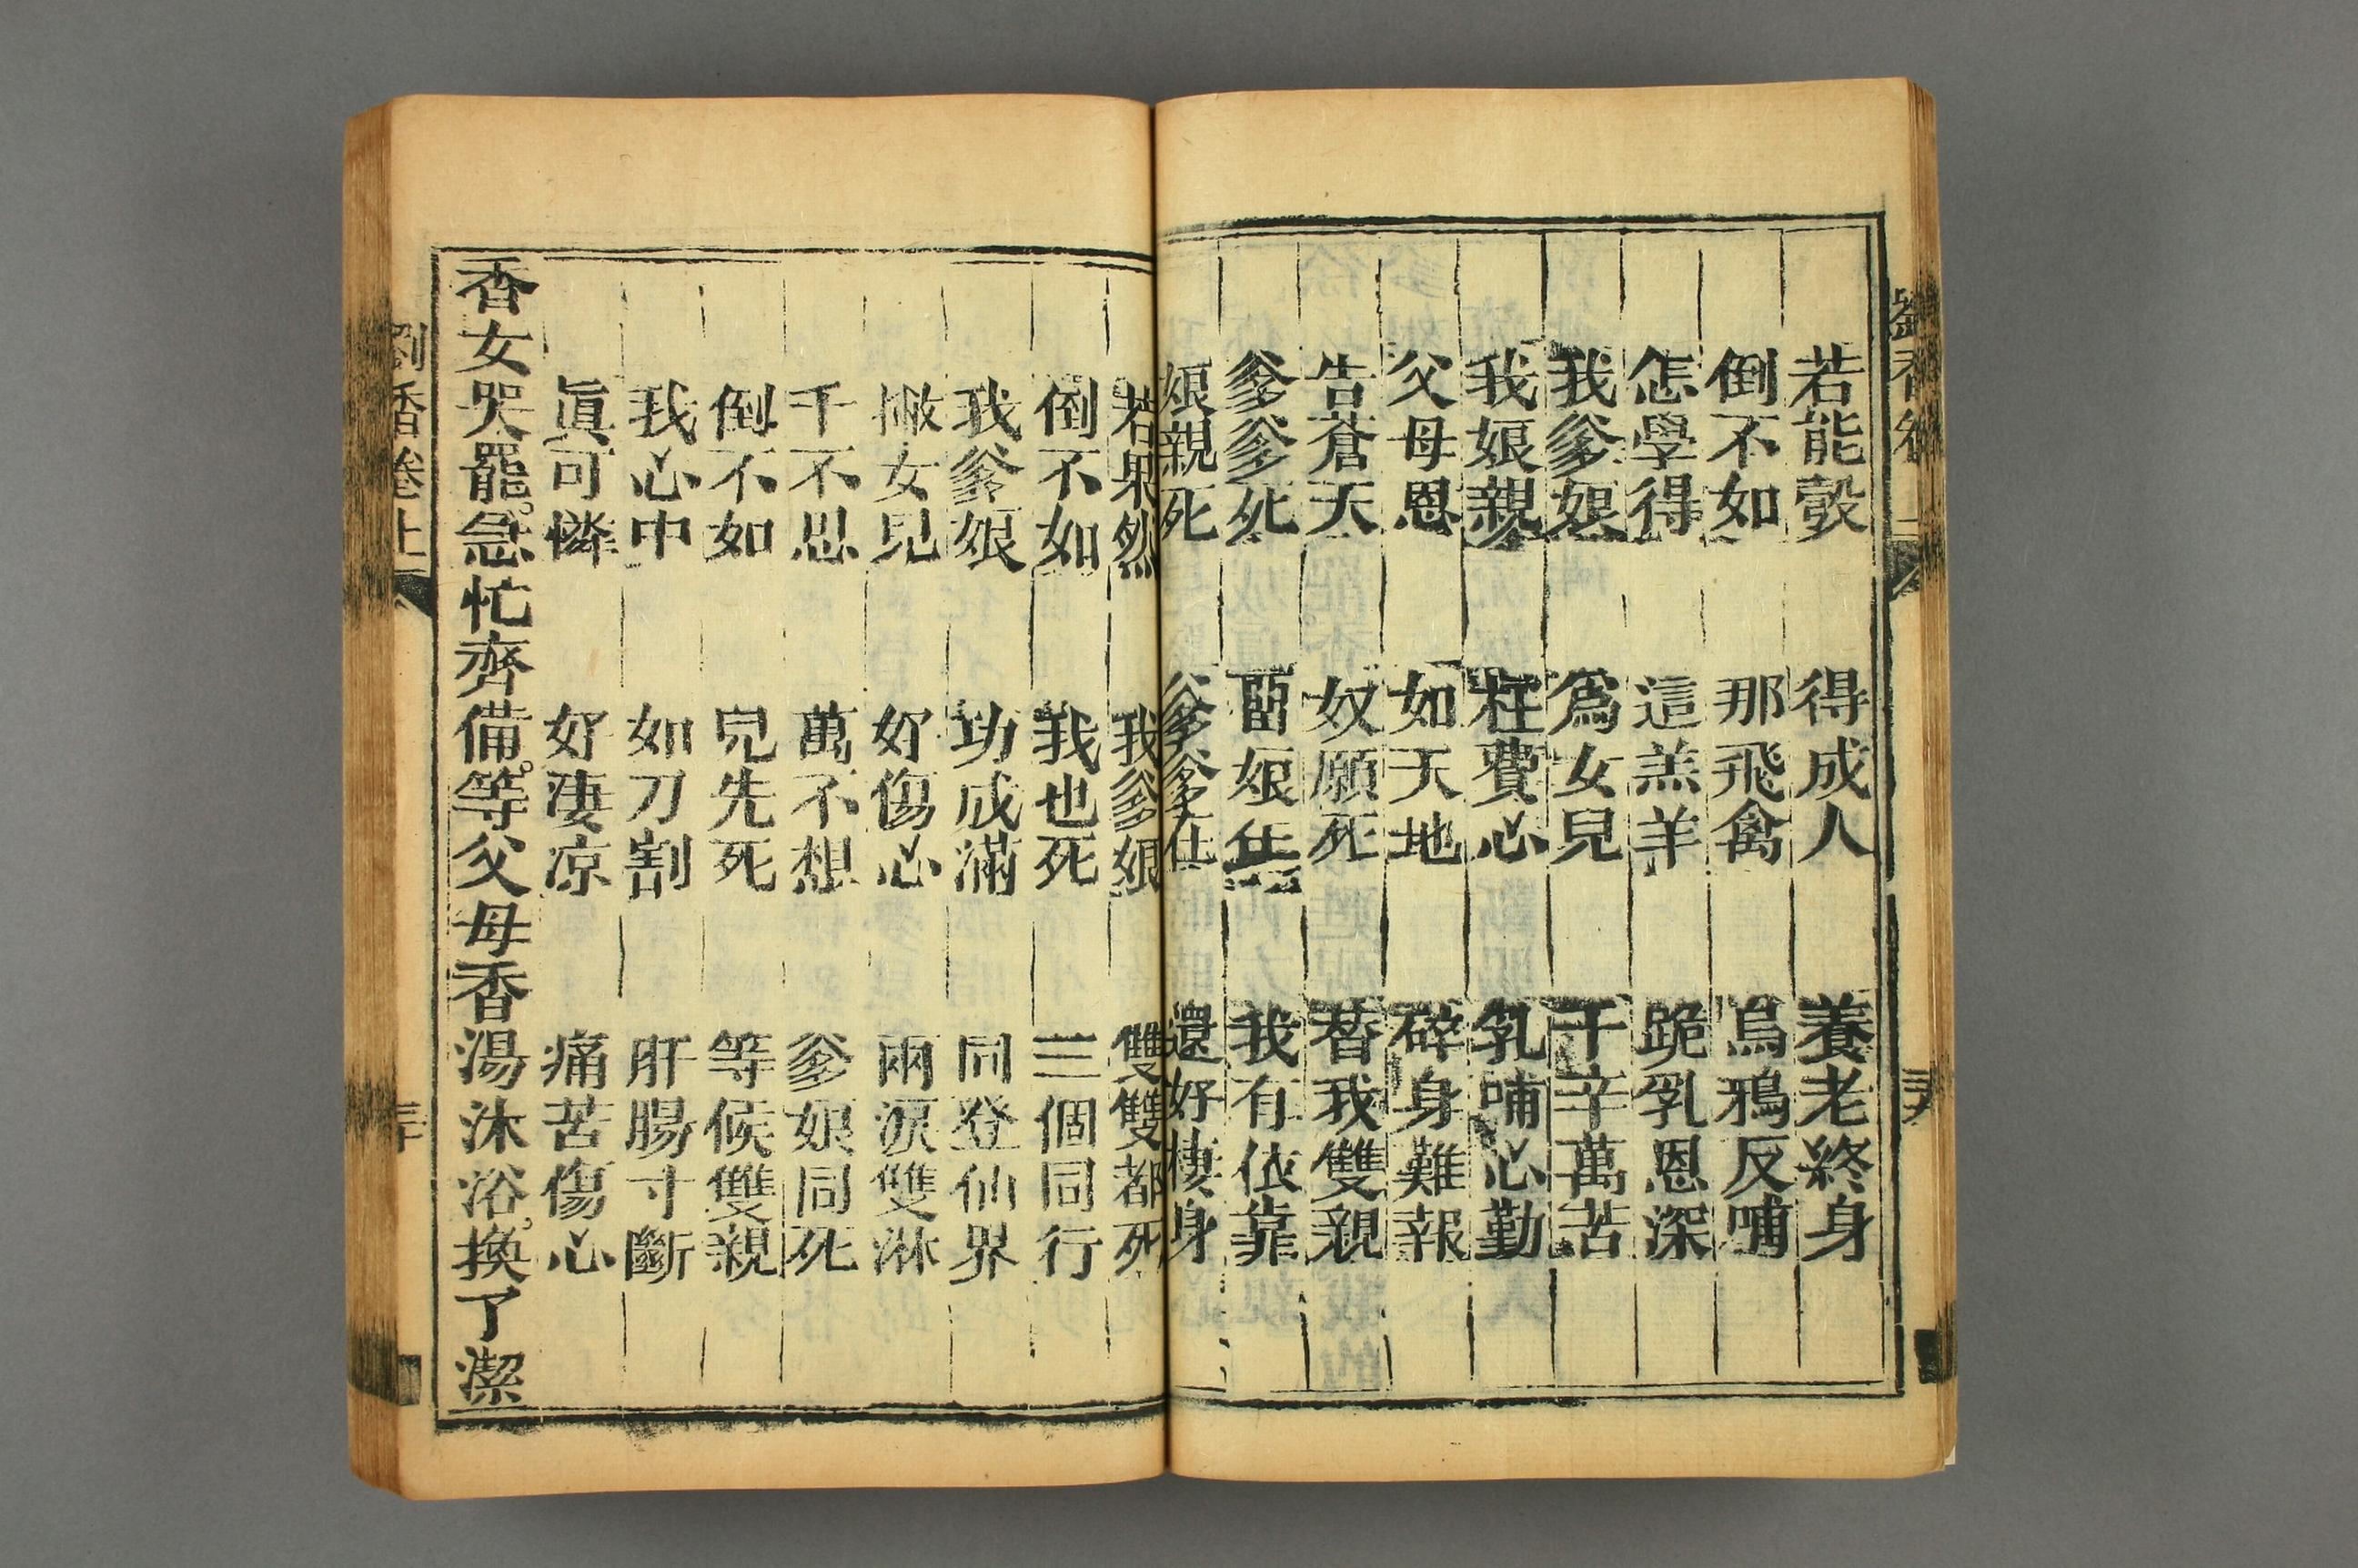 若能彀 得成人 養老終身
倒不如 那飛禽 烏鴉反哺
怎學得 這羔羊 跪乳恩深
我爹娘 爲女兒 千辛萬苦
我娘親 枉費心 乳哺心勤
父母恩 如天地 碎身難報
告蒼天 奴願死 替我雙親
爹爹死 留娘在 我有依靠
娘親死 爹爹在 還好棲身
若果然 我爹娘 雙雙都死
倒不如 我也死 三個同行
我爹娘 功成滿 同登仙界
撇女兒 好傷心 兩淚雙淋
千不思 萬不想 爹娘同死
倒不如 兒先死 等候雙親
我心中 如刀割 肝腸寸斷
眞可憐 好淒凉 痛苦傷心
香女哭罷。急忙齊備。等父母香湯沐浴。換了潔
劉香卷上